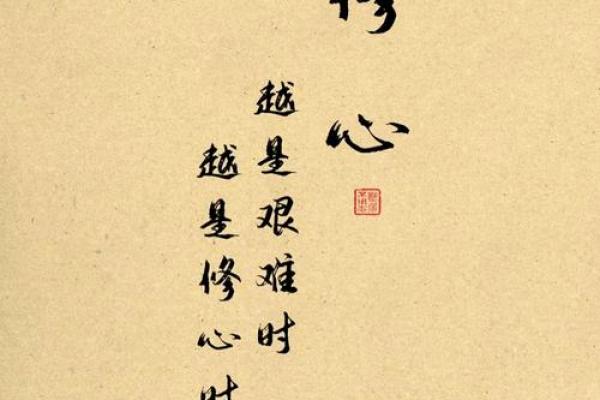 修心
越是艰难时
越是修心时